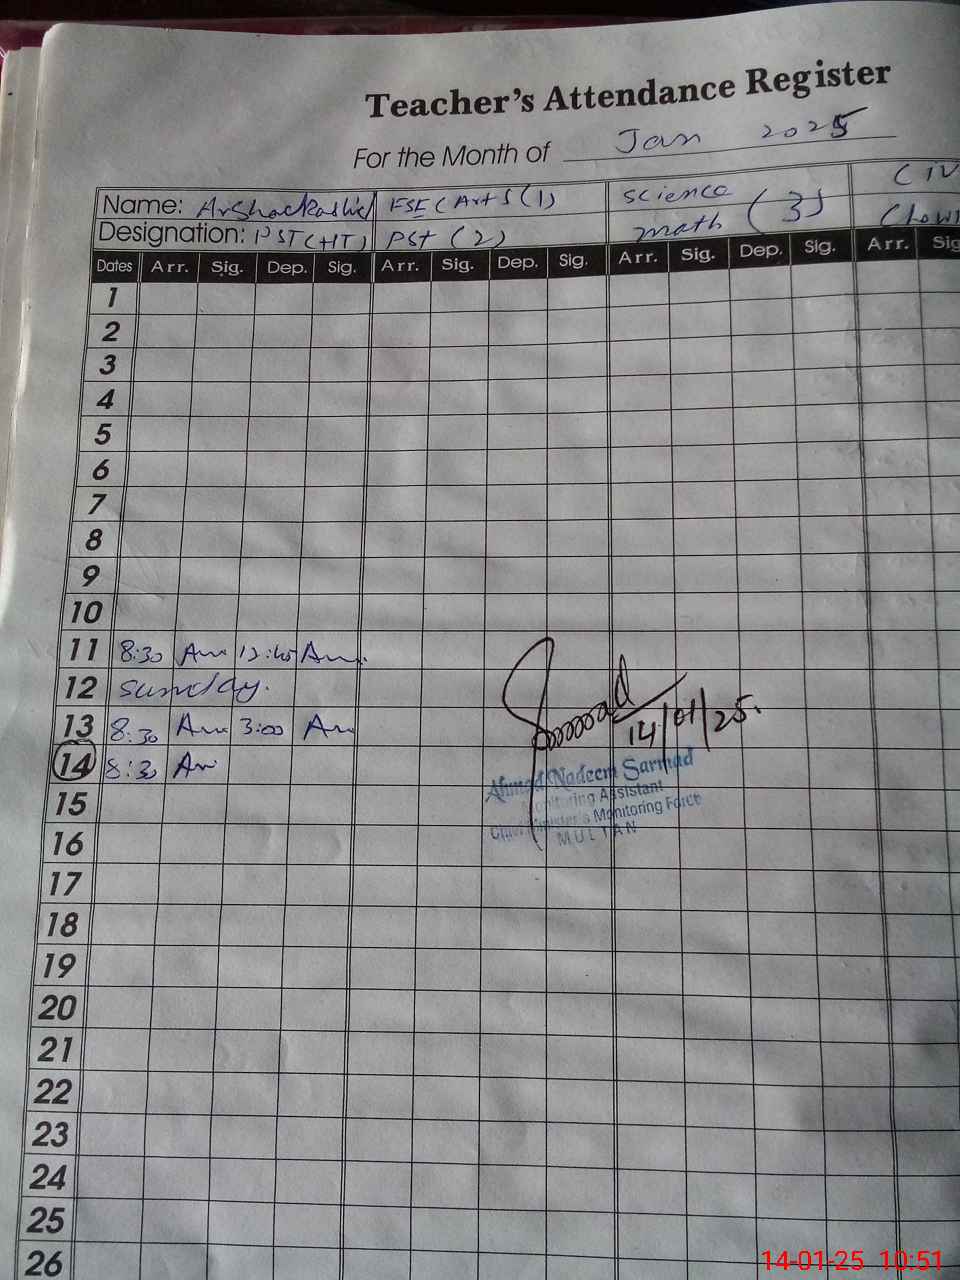 Teacher's Attendance Register
For the Month of Jan 2025
Name: ESE (Arts (1) science (3)
Designation: PST (HT) PST (2) math
Dates Arr. Sig. Dep. Sig. Arr. Sig. Dep. Sig. Arr. Sig. Dep. Sig. Arr. Sig
1
2
3
4
5
6
7
8
9
10
11 8:30
12 Sunday.
13 8:30 3:00
14 8:30
14/01/25.
Ahmad Nadeem Sarmad
Monitoring Assistant
Chief Minister's Monitoring Force
MULTAN
15
16
17
18
19
20
21
22
23
24
25
26
14-01-25 10:51